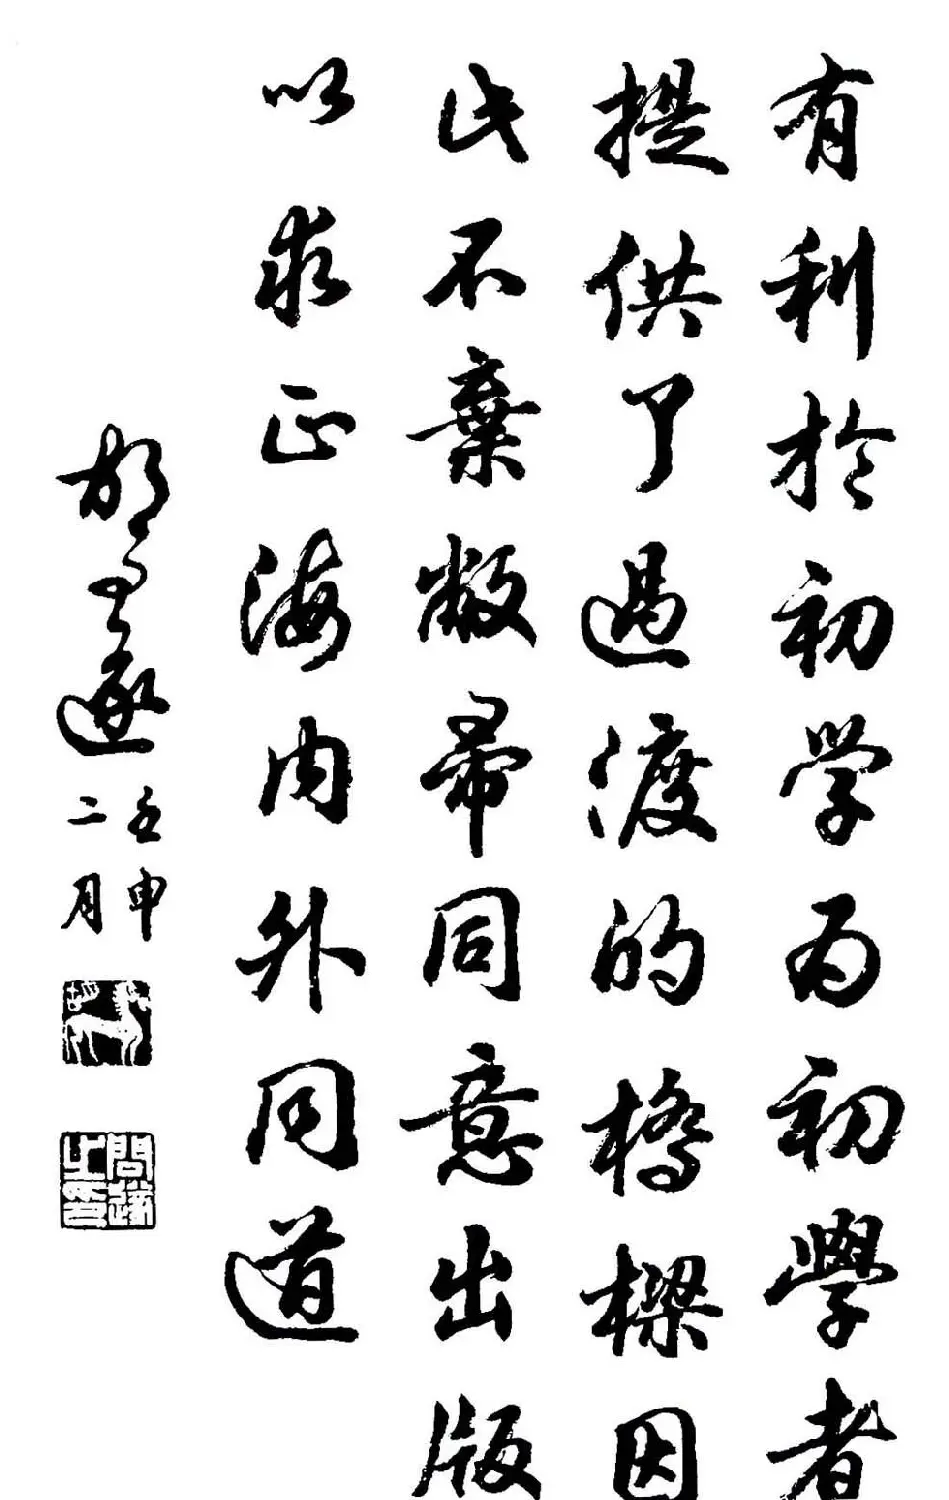 有利於初学为初學者
提供了過渡的橋樑因
此不棄敝帚同意出版
以求正海内外同道
胡问遂
壬申
二月
胡
問遂之印